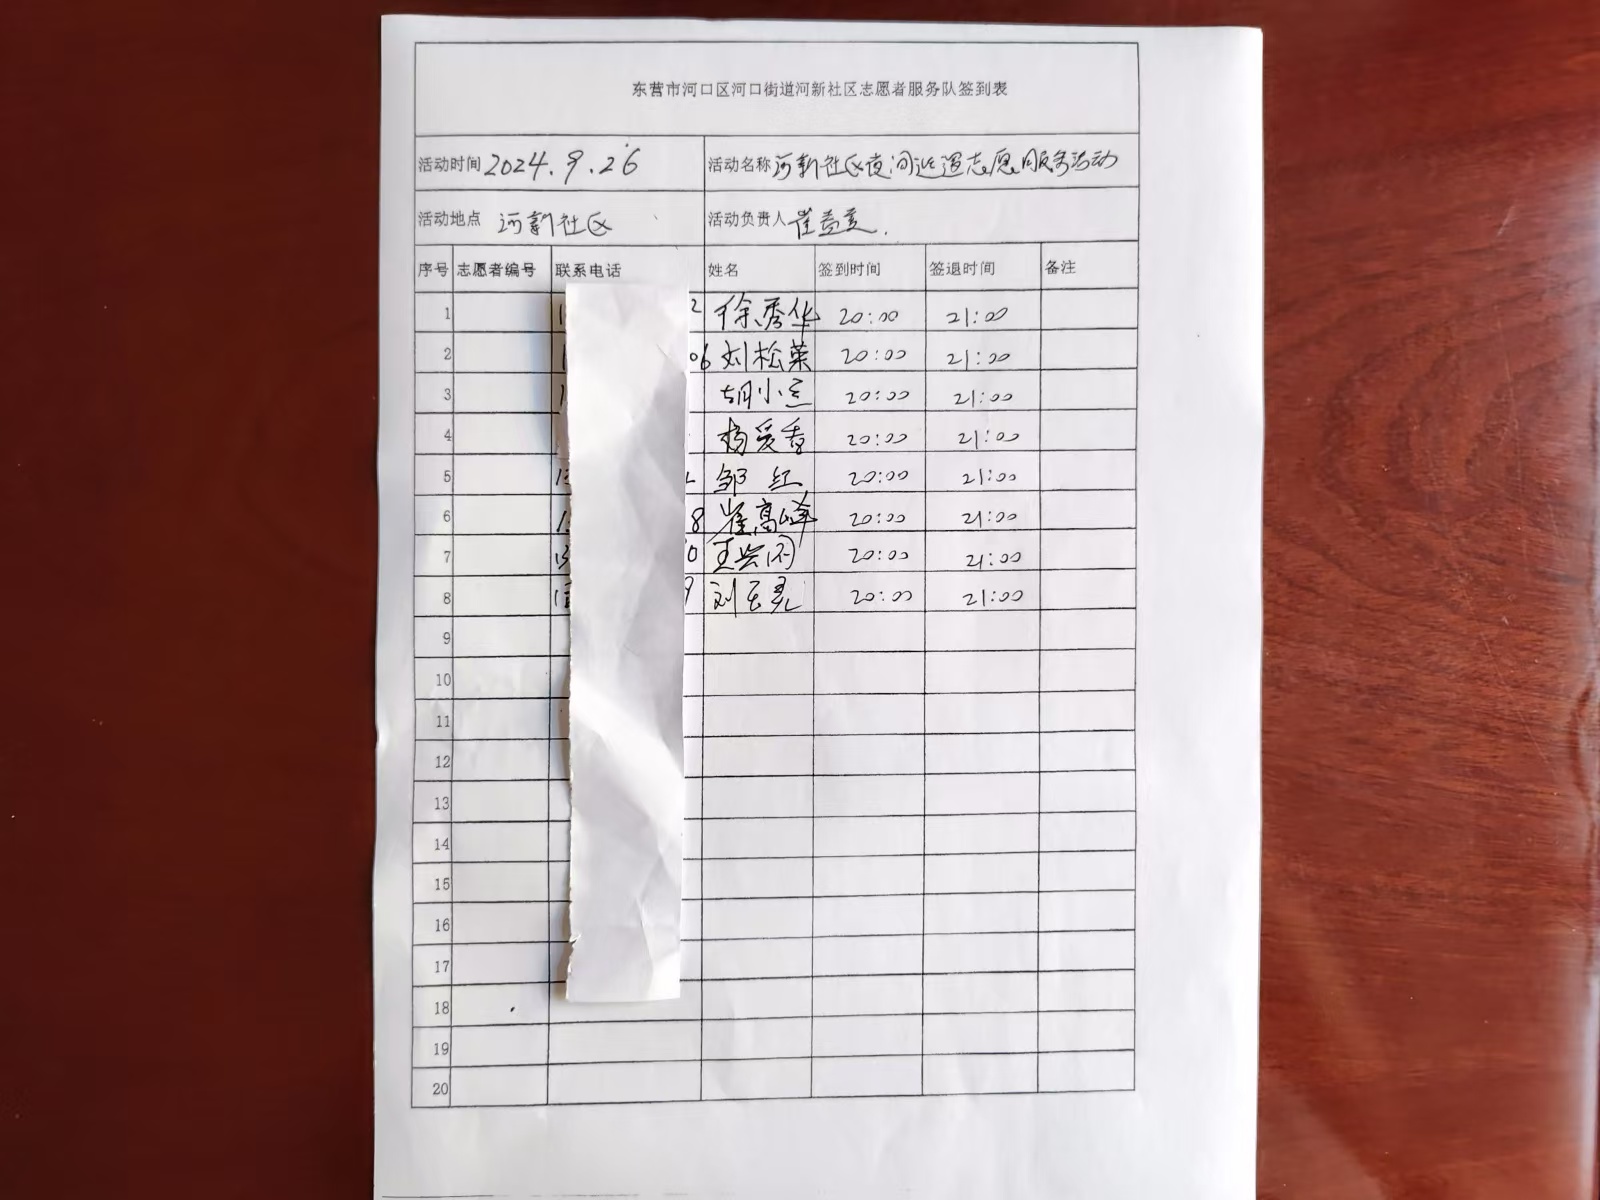 东营市河口区河口街道河新社区志愿者服务队签到表
活动时间 2024.9.26 活动名称 河新社区夜间巡逻志愿服务活动
活动地点 河新社区 活动负责人 崔
序号 志愿者编号 联系电话 姓名 签到时间 签退时间 备注
1 2 徐秀华 20:00 21:00
2 06 刘松荣 20:00 21:00
3 胡小 20:00 21:00
4 杨爱香 20:00 21:00
5 邹红 20:00 21:00
6 8 崔高峰 20:00 21:00
7 13 0 王兴 20:00 21:00
8 9 刘 20:00 21:00
9
10
11
12
13
14
15
16
17
18
19
20